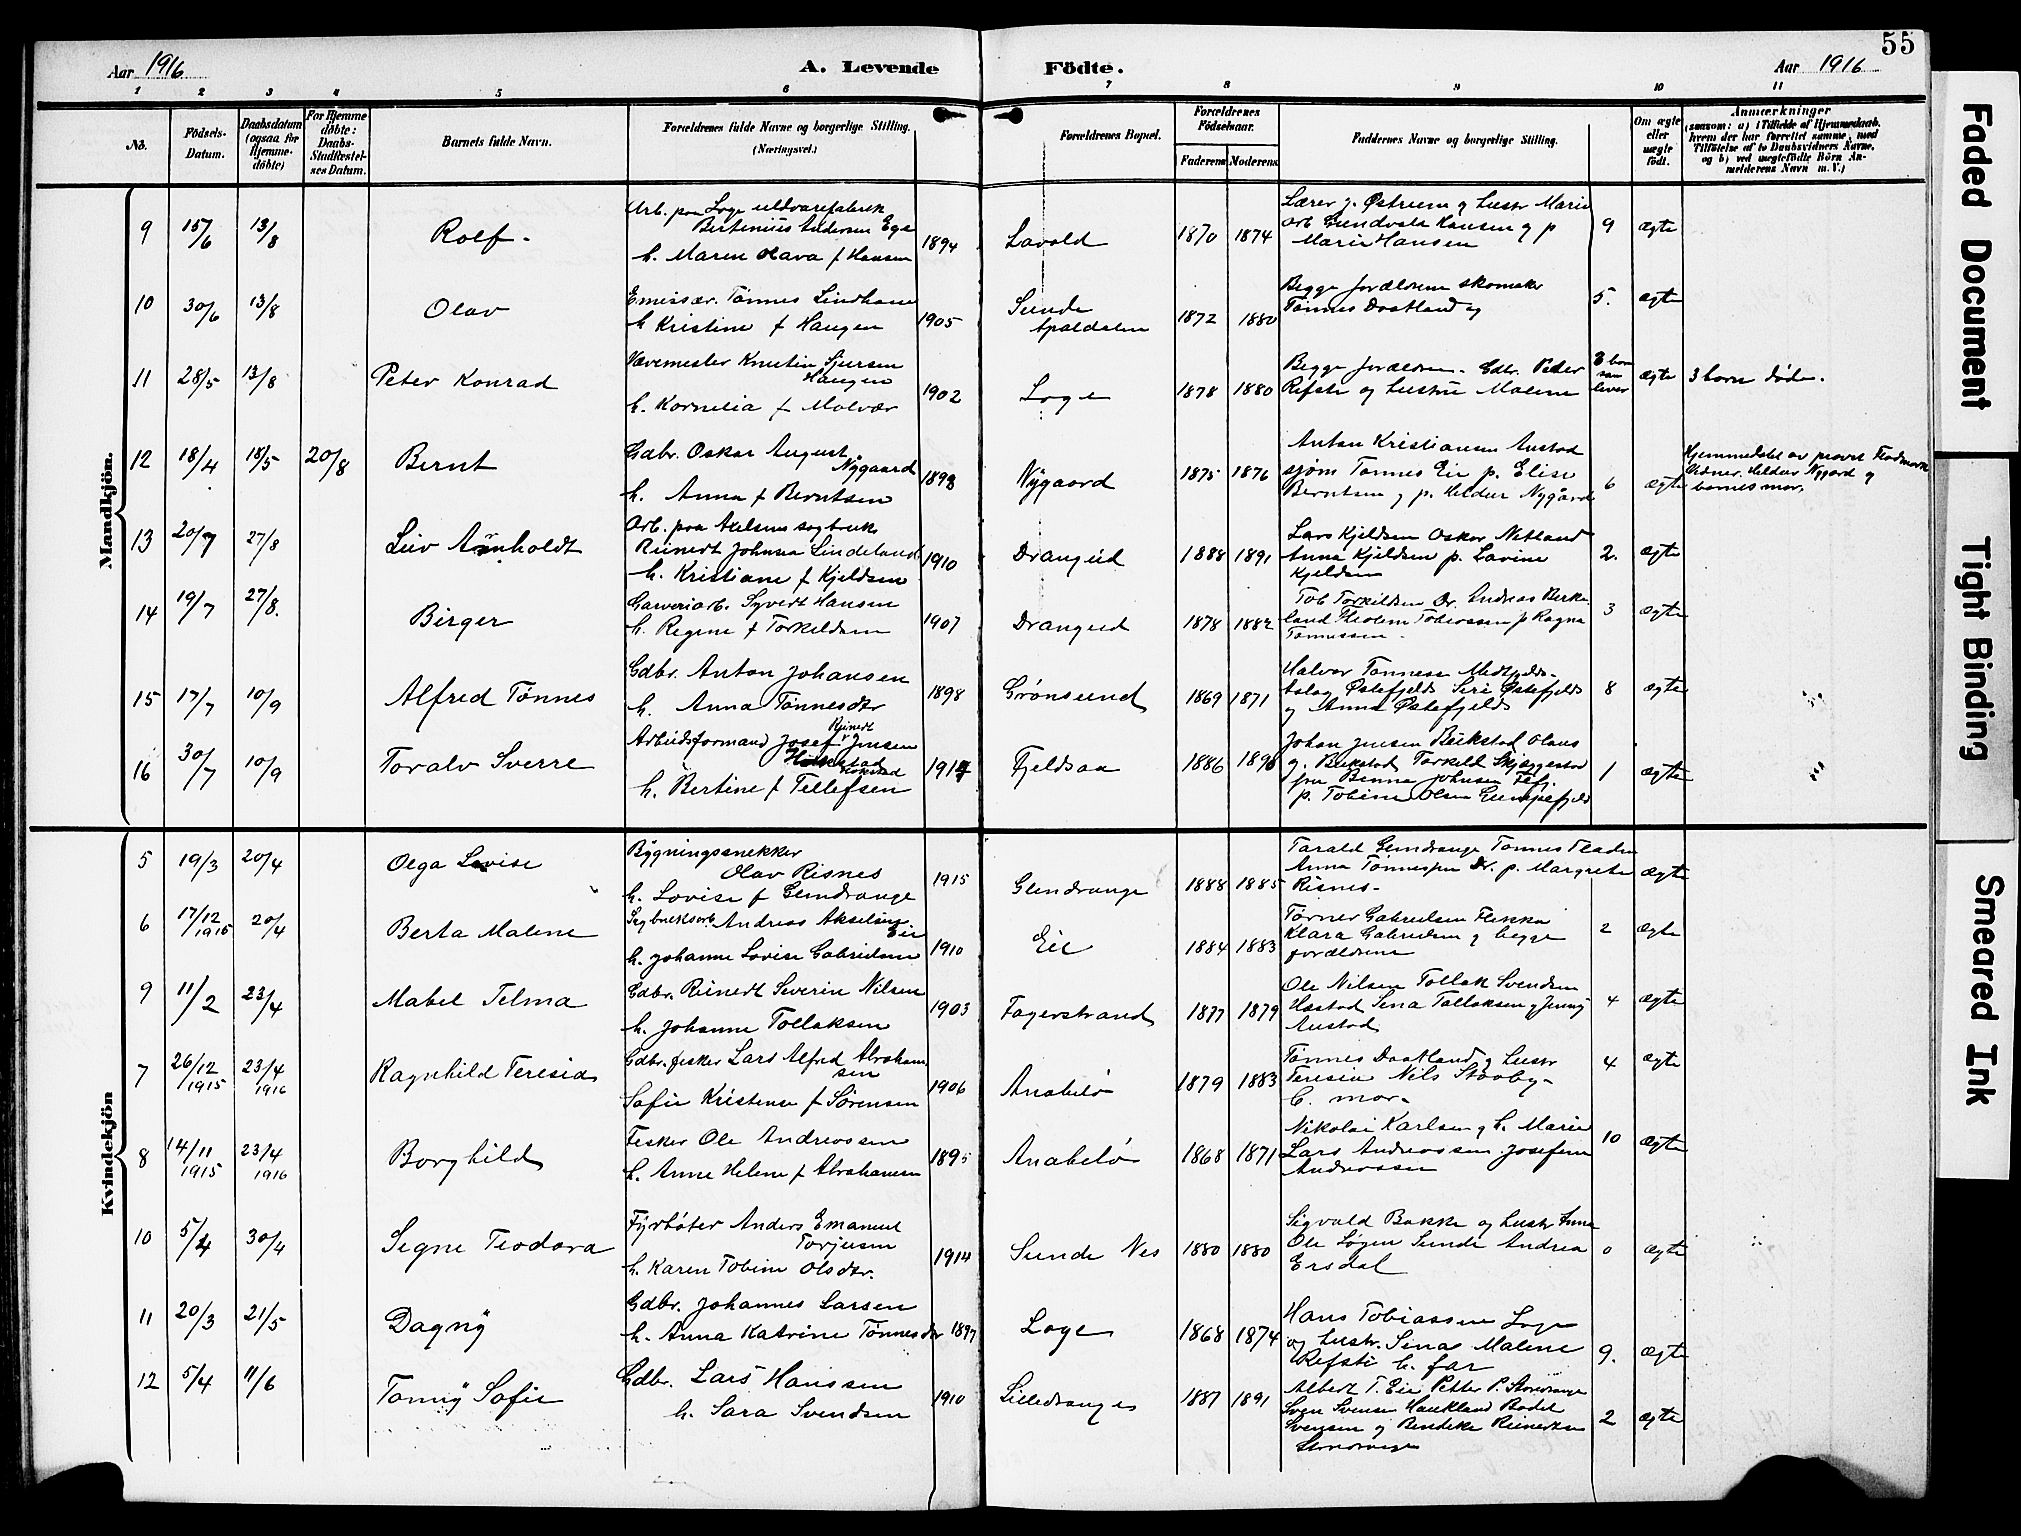 55
Aar 1916
A. Levende
Födte.
Aar 1916
1 2 3 4 5 6 7 8 9 10 11
No.
Födsels-Datum.
Daabsdatum (ogsaa for Hjemme-döbte)
For Hjemme döbte: Daabs-Stadfæstel-ses Datum.
Barnets fulde Navn.
Forældrenes fulde Navne og borgerlige Stilling.
(Næringsvei.)
Forældrenes Bopæl.
Forældrenes Födselsaar.
Faderens Moderens
Faddernes Navne og borgerlige Stilling.
Om ægte eller uægte födt.
Anmærkninger
(saasom: a) i Tilfælde af Hjemmedaab, hvem der har forrettet samme, med Tilföielse af to Daabsvidners Navne, og b) ved uægtefödte Börn An-melderens Navn m. V.)
Mandkjön.
9 15/6 13/8 Rolf -
Arb. paa Loge uldvarefabrik
Bertinius Andersen Ege
h. Maren Olava f Hansen 1894
Lavold 1870 1874
Lærer J. Østrem og hustr Marie
arb Gundvald Hansen og p
Marie Hansen
9 ægte
10 30/6 13/8 Olav
Emissær. Tønnes Lindhane
h Kristine f Haugen 1905
Sunde
Apaldalen 1872 1880
Begge forældrene skomaker
Tønnes Daatland og
5. ægte
11 28/5 13/8 Peter Konrad
Vævemester Knutin Sjursen
Haugen
h. Kornelia f Malvær 1902
Loge 1878 1880
Begge forældren. Gdbr. Peder
Refsti og hustru Malene
3 barn
som
lever
ægte 3 barn døde.
12 18/4 18/5 20/8 Bernt
Gdbr. Oskar August
Nygaard
h. Anna f Berntsen 1898
Nygaard 1875 1876
Anton Kristiansen Austad
sjøm Tønnes Eie p. Elise
Berntsen og p. Heldur Nygård
6 ægte
Hjemmedøbt av provst Flodmark
Vidner. Heldur Nygård og
barnets mor.
13 20/7 27/8 Leiv Arnholdt
Arb. paa Axelsens sagbruk
Reinert Johnsen Lindeland
h. Kristiane f Kjeldsen 1910
Drangeid 1888 1891
Lars Kjeldsen Oskar Netland
Anna Kjeldsen p. Lavine
Kjeldsen
2. ægte
14 19/7 27/8. Birger
Garveriarb. Syvert Hansen
h. Regine f Torkeldsen 1907
Drangeid 1878 1882
Tob Torkildsen Dr. Andreas Berke
land Teolene Tobiassen p Ragna
Tønnessen -
3 ægte
15 17/7 10/9 Alfred Tønnes
Gdbr. Anton Johansen
h. Anna Tønnesdtr 1898
Grønsund 1869 1871
Halvor Tønnesen Midtfjelds-
Østefjeld Siri Østefjeld
og Anna Østefjeld
8 ægte
16 30/7 10/9 Toralv Sverre
Reinert
Arbeidsformand Josef Jensen
h. Bertine f Tellefsen 1914
Fjeldsaa 1886 1896
Johan Jensen Bukstad Olaus
Bukstad Torkild Skjeggestad
fru Benna Johnsen Fej.
p. Tobine Olsen Gumpefjeld
1 ægte
Kvindekjön
5 19/3 20/4 Olga Lovise
Bygningssnekker
Olav Risnes
h. Lovise f Glendrange 1915
Glendrange 1888 1885
Tarald Glendrange Tønnes Fladen
Anna Tønnessen Dr. p. Margrete
Risnes -
ægte
6 17/12 1915 20/4 Berta Malene
Sagbruksarb. Andreas Akselsen
Eie
h. Johanne Lovise Gabrielsen 1910
Eie 1884 1883
Tørner Gabrielsen Flikka
Klara Gabrielsen og begge
forældrene
2 ægte
9 11/2 23/4 Mabel Telma
Gdbr. Reinert Severin Nilsen
h. Johanne Tollaksen 1903
Fagerstrand 1877 1879
Ole Nilsen Tollak Svendsen
Haastad Sina Tollaksen og Jenny
Austad
4 ægte
7 26/12 1915 23/4 1916 Ragnhild Teresia
Gdbr. fisker Lars Alfred Abraham
sen
Sofie Kristense f Sørensen 1906
Anabeløi 1879 1883
Tønnes Daatland og hustr
Teresia Nils Staaby -
b. mor -
4 ægte
8 14/11 1915 23/4 1916 Borghild
Fisker Ole Andreassen
h. Anne Helene f Abrahamsen 1895
Anabeløi 1868 1871
Nikolai Karlsen og h. Marie
Lars Andreassen Josefine
Andreassen
10 ægte
10 5/4 30/4 Signe Teodora
Fyrbøter Anders Emanuel
Torjusen
h. Karen Tobine Olsdtr. 1914
Sunde Nes 1880 1880
Sigvald Bakke og hustr Anna
Ole Løgen Sunde Andrea
Ersdal
0 ægte
11 20/3 21/5 Dagny
Gdbr. Johannes Larsen
h. Anna Katrine Tønnesdtr 1897
Loge 1868 1874
Hans Tobiassen Loge
og hustr. Sina Malene
Refsti b. far
9. ægte
12 5/4 11/6 Tomy Sofie
Gdbr. Lars Hanssen
h. Sara Svendsen 1910
Lilledrange 1887 1891
Albert T. Eie Petter P. Stordrange
Sven Svensen Haukland Bodil
Svensen og Bendike Reinertsen
Stordrange
2 ægte
Faded Document
Tight Binding
Smeared Ink